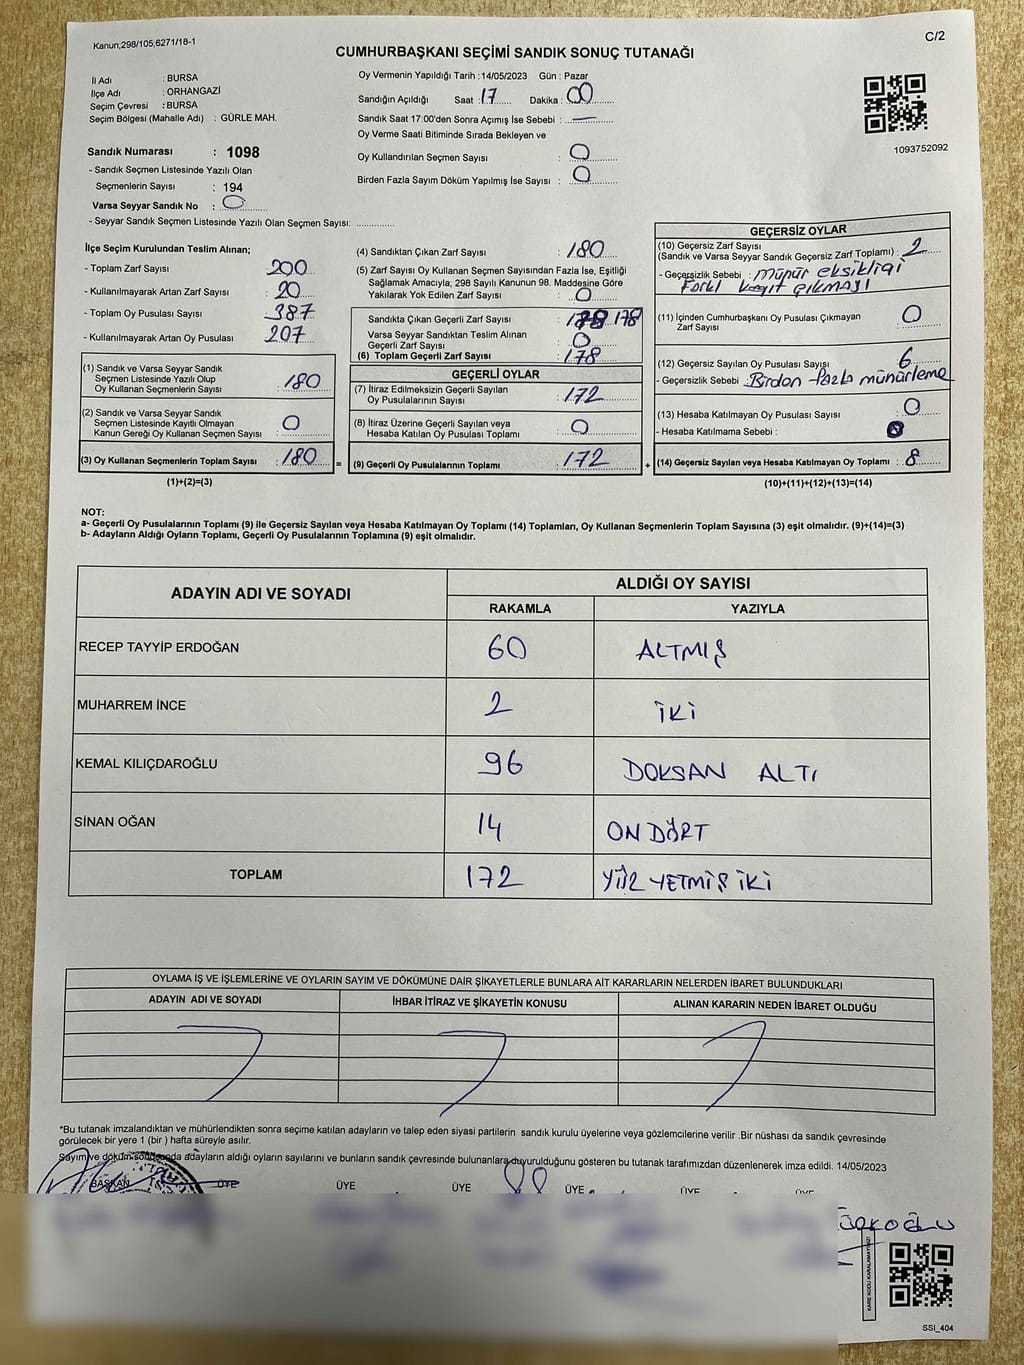 Kanun,298/105,6271/18-1
C/2
CUMHURBAŞKANI SEÇİMİ SANDIK SONUÇ TUTANAĞI
İl Adı : BURSA
İlçe Adı : ORHANGAZİ
Seçim Çevresi : BURSA
Seçim Bölgesi (Mahalle Adı) : GÜRLE MAH.
Sandık Numarası : 1098
- Sandık Seçmen Listesinde Yazılı Olan
Seçmenlerin Sayısı : 194
Varsa Seyyar Sandık No : 0
- Seyyar Sandık Seçmen Listesinde Yazılı Olan Seçmen Sayısı: ..............
Oy Vermenin Yapıldığı Tarih : 14/05/2023 Gün : Pazar
Sandığın Açıldığı Saat : 17 Dakika : 00
Sandık Saat 17:00'den Sonra Açımış İse Sebebi : —
Oy Verme Saati Bitiminde Sırada Bekleyen ve
Oy Kullandırılan Seçmen Sayısı : 0
Birden Fazla Sayım Döküm Yapılmış İse Sayısı : 0
1093752092
İlçe Seçim Kurulundan Teslim Alınan;
- Toplam Zarf Sayısı : 200
- Kullanılmayarak Artan Zarf Sayısı : 20
- Toplam Oy Pusulası Sayısı : 387
- Kullanılmayarak Artan Oy Pusulası : 207
(1) Sandık ve Varsa Seyyar Sandık
Seçmen Listesinde Yazılı Olup
Oy Kullanan Seçmenlerin Sayısı : 180
(2) Sandık ve Varsa Seyyar Sandık
Seçmen Listesinde Kayıtlı Olmayan
Kanun Gereği Oy Kullanan Seçmen Sayısı : 0
(3) Oy Kullanan Seçmenlerin Toplam Sayısı : 180 =
(1)+(2)=(3)
(4) Sandıktan Çıkan Zarf Sayısı : 180
(5) Zarf Sayısı Oy Kullanan Seçmen Sayısından Fazla İse, Eşitliği
Sağlamak Amacıyla, 298 Sayılı Kanunun 98. Maddesine Göre
Yakılarak Yok Edilen Zarf Sayısı : 0
Sandıkta Çıkan Geçerli Zarf Sayısı : 178 178
Varsa Seyyar Sandıktan Teslim Alınan
Geçerli Zarf Sayısı : 0
(6) Toplam Geçerli Zarf Sayısı : 178
GEÇERLİ OYLAR
(7) İtiraz Edilmeksizin Geçerli Sayılan
Oy Pusulalarının Sayısı : 172
(8) İtiraz Üzerine Geçerli Sayılan veya
Hesaba Katılan Oy Pusulası Toplamı : 0
(9) Geçerli Oy Pusulalarının Toplamı : 172 +
GEÇERSİZ OYLAR
(10) Geçersiz Zarf Sayısı
(Sandık ve Varsa Seyyar Sandık Geçersiz Zarf Toplamı) : 2
- Geçersizlik Sebebi : mühür eksikliği
Farkl kağıt çıkması
(11) İçinden Cumhurbaşkanı Oy Pusulası Çıkmayan
Zarf Sayısı : 0
(12) Geçersiz Sayılan Oy Pusulası Sayısı : 6
- Geçersizlik Sebebi : Birden fazla mühürleme
(13) Hesaba Katılmayan Oy Pusulası Sayısı : 0
- Hesaba Katılmama Sebebi :
(14) Geçersiz Sayılan veya Hesaba Katılmayan Oy Toplamı : 8
(10)+(11)+(12)+(13)=(14)
NOT:
a- Geçerli Oy Pusulalarının Toplamı (9) ile Geçersiz Sayılan veya Hesaba Katılmayan Oy Toplamı (14) Toplamları, Oy Kullanan Seçmenlerin Toplam Sayısına (3) eşit olmalıdır. (9)+(14)=(3)
b- Adayların Aldığı Oyların Toplamı, Geçerli Oy Pusulalarının Toplamına (9) eşit olmalıdır.
ADAYIN ADI VE SOYADI ALDIĞI OY SAYISI
RAKAMLA YAZIYLA
RECEP TAYYİP ERDOĞAN 60 ALTMIŞ
MUHARREM İNCE 2 İKİ
KEMAL KILIÇDAROĞLU 96 DOKSAN ALTI
SİNAN OĞAN 14 ON DÖRT
TOPLAM 172 YÜZ YETMİŞ İKİ
OYLAMA İŞ VE İŞLEMLERİNE VE OYLARIN SAYIM VE DÖKÜMÜNE DAİR ŞİKAYETLERLE BUNLARA AİT KARARLARIN NELERDEN İBARET BULUNDUKLARI
ADAYIN ADI VE SOYADI İHBAR İTİRAZ VE ŞİKAYETİN KONUSU ALINAN KARARIN NEDEN İBARET OLDUĞU
*Bu tutanak imzalandıktan ve mühürlendikten sonra seçime katılan adayların ve talep eden siyasi partilerin sandık kurulu üyelerine veya gözlemcilerine verilir .Bir nüshası da sandık çevresinde
görülecek bir yere 1 (bir ) hafta süreyle asılır.
Sayım ve döküm sonrasında adayların aldığı oyların sayılarını ve bunların sandık çevresinde bulunanlara duyurulduğunu gösteren bu tutanak tarafımızdan düzenlenerek imza edildi. 14/05/2023
BAŞKAN ÜYE ÜYE ÜYE ÜYE ÜYE ÜYE
KARE KODU KARALAMAYINIZ!
SSI_404